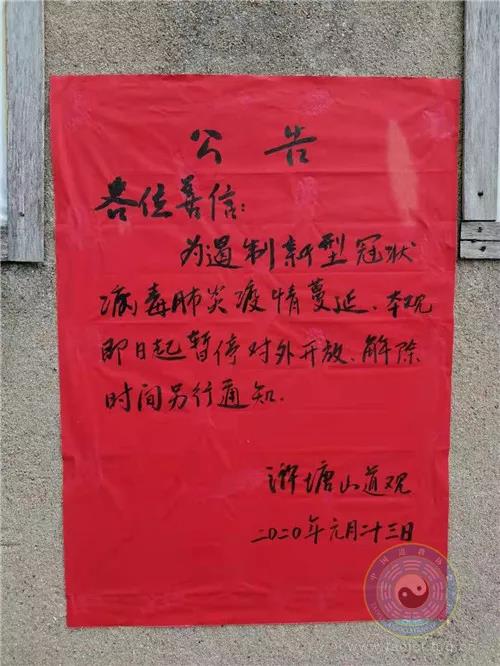 公告
各位善信：
为遏制新型冠状
病毒肺炎疫情蔓延、本观
即日起暂停对外开放、解除
时间另行通知.
塘山道观
二〇二〇年元月二十三日
中国道教协会